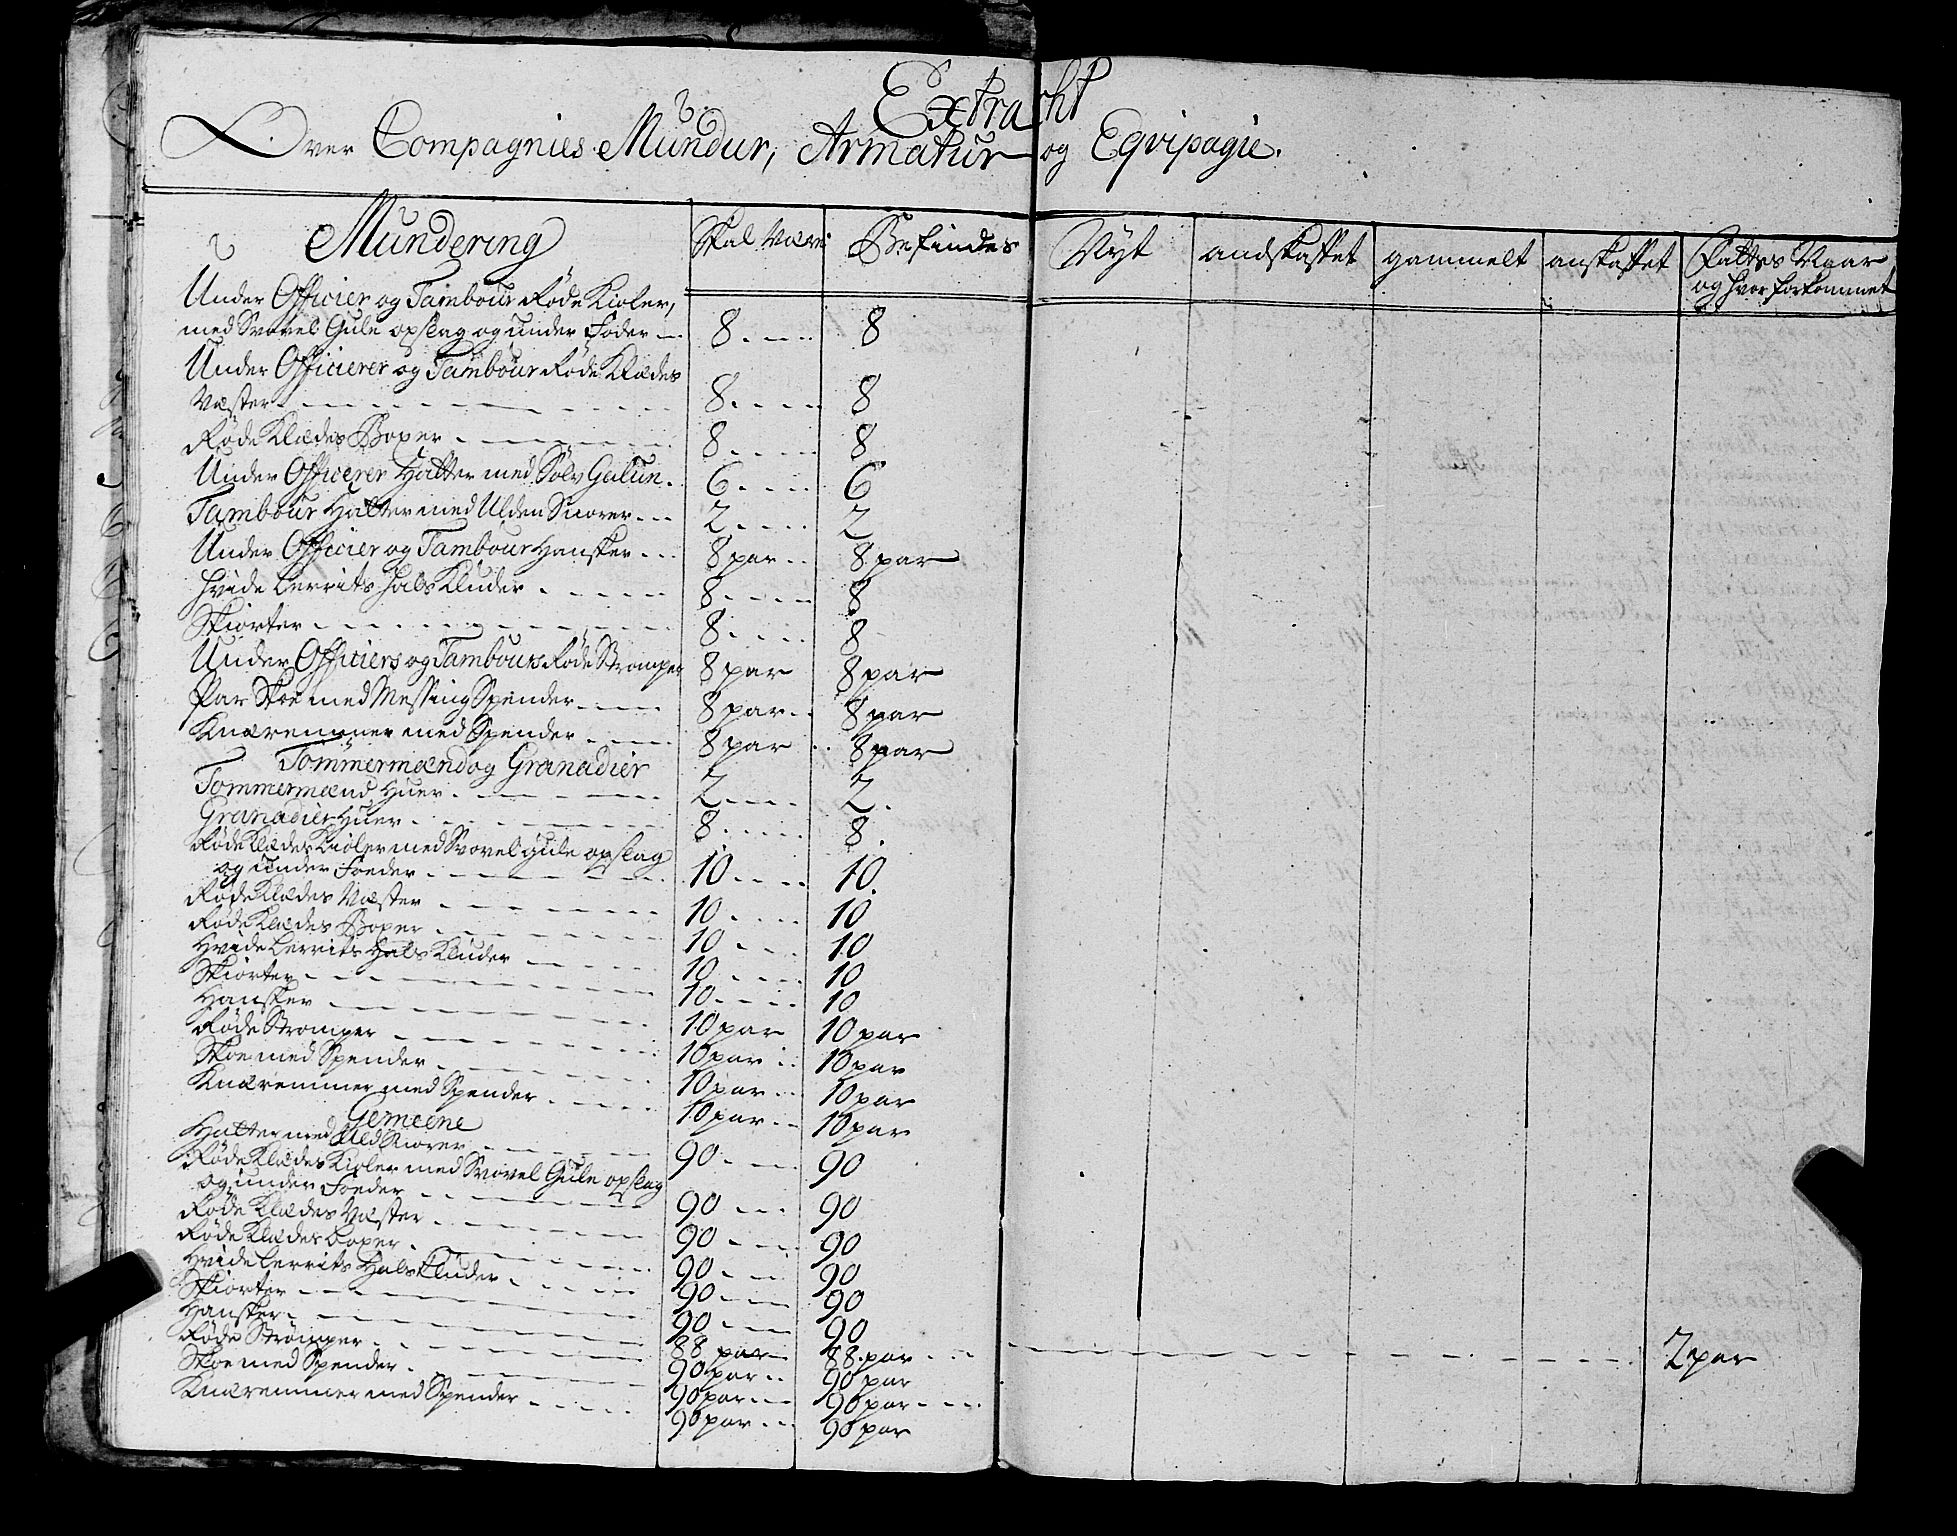 Extracht
Over Compagnies Mundur, Armatur og Eqvipagie.
Mundering Skal Være Befindes Nyt andskaffet gammelt anskaffet Fattes Naar
og hvor forkommet
Under Officier og Tambour Røde Kioler,
med Svovel Gule opslag og under Foder 8 8
Under Officierer og Tambour Røde Klædes
Væster 8 8
Røde Klædes Boxer 8 8
Under Officerer Hatter med Sølv Galun 6 6
Tambour Hatter med Ulden Snorer 2 2
Under Officier og Tambour Hansker 8 par 8 par
Hvide Lerrits Hals Kluder 8 8
Skiorter 8 8
Under Officiers og Tambours Røde Strømper 8 par 8 par
Par Skoe med Messing Spender 8 par 8 par
Knæremmer med Spender 8 par 8 par
Tømmermænd og Granadier
Tømmermænd Huer 2 2
Granadier Huer 8 8
Røde Klædes Kioler med Svovel gule opslag
og under Foeder 10 10
Røde Klædes Væster 10 10
Røde Klædes Boxer 10 10
Hvide Lerrits Hals Kluder 10 10
Skiorter 10 10
Hansker 10 par 10 par
Røde Strømper 10 par 10 par
Skoe med Spender 10 par 10 par
Knæremmer med Spender 10 par 10 par
Gemeene
Hatter med Uld Snorer 90 90
Røde Klædes Kioler med Svovel Gule opslag
og under Foeder 90 90
Røde Klædes Væster 90 90
Røde Klædes Boxer 90 90
Hvide Lerrits Hals Kluder 90 90
Skiorter 90 90
Hansker 88 par 88 par 2 par
Røde Strømper 90 par 90 par
Skoe med Spender 90 par 90 par
Knæremmer med Spender 90 par 90 par